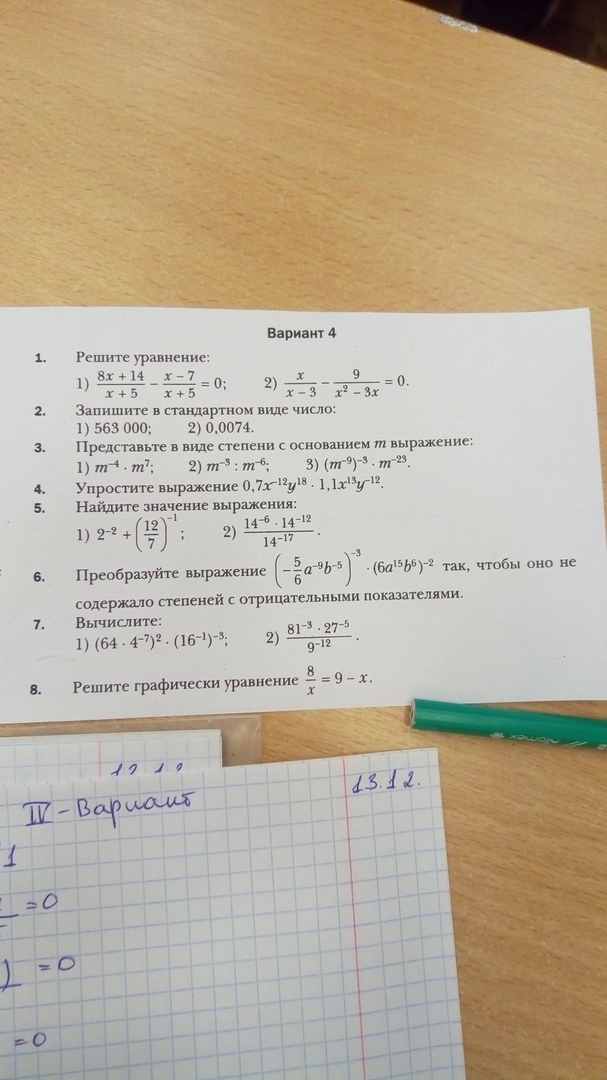 Вариант 4
1. Решите уравнение:
1) (8x + 14)/(x + 5) − (x − 7)/(x + 5) = 0; 2) x/(x − 3) − 9/(x² − 3x) = 0.
2. Запишите в стандартном виде число:
1) 563 000; 2) 0,0074.
3. Представьте в виде степени с основанием m выражение:
1) m⁻⁴ · m⁷; 2) m⁻³ : m⁻⁶; 3) (m⁻⁹)⁻³ · m⁻²³.
4. Упростите выражение 0,7x⁻¹²y¹⁸ · 1,1x¹³y⁻¹².
5. Найдите значение выражения:
1) 2⁻² + (12/7)⁻¹; 2) (14⁻⁶ · 14⁻¹²)/14⁻¹⁷.
6. Преобразуйте выражение (−5/6 a⁻⁹b⁻⁵)⁻³ · (6a¹⁵b⁶)⁻² так, чтобы оно не
содержало степеней с отрицательными показателями.
7. Вычислите:
1) (64 · 4⁻⁷)² · (16⁻¹)⁻³; 2) (81⁻³ · 27⁻⁵)/9⁻¹².
8. Решите графически уравнение 8/x = 9 − x.
13.12.
IV - Вариант
1
= 0
= 0
= 0